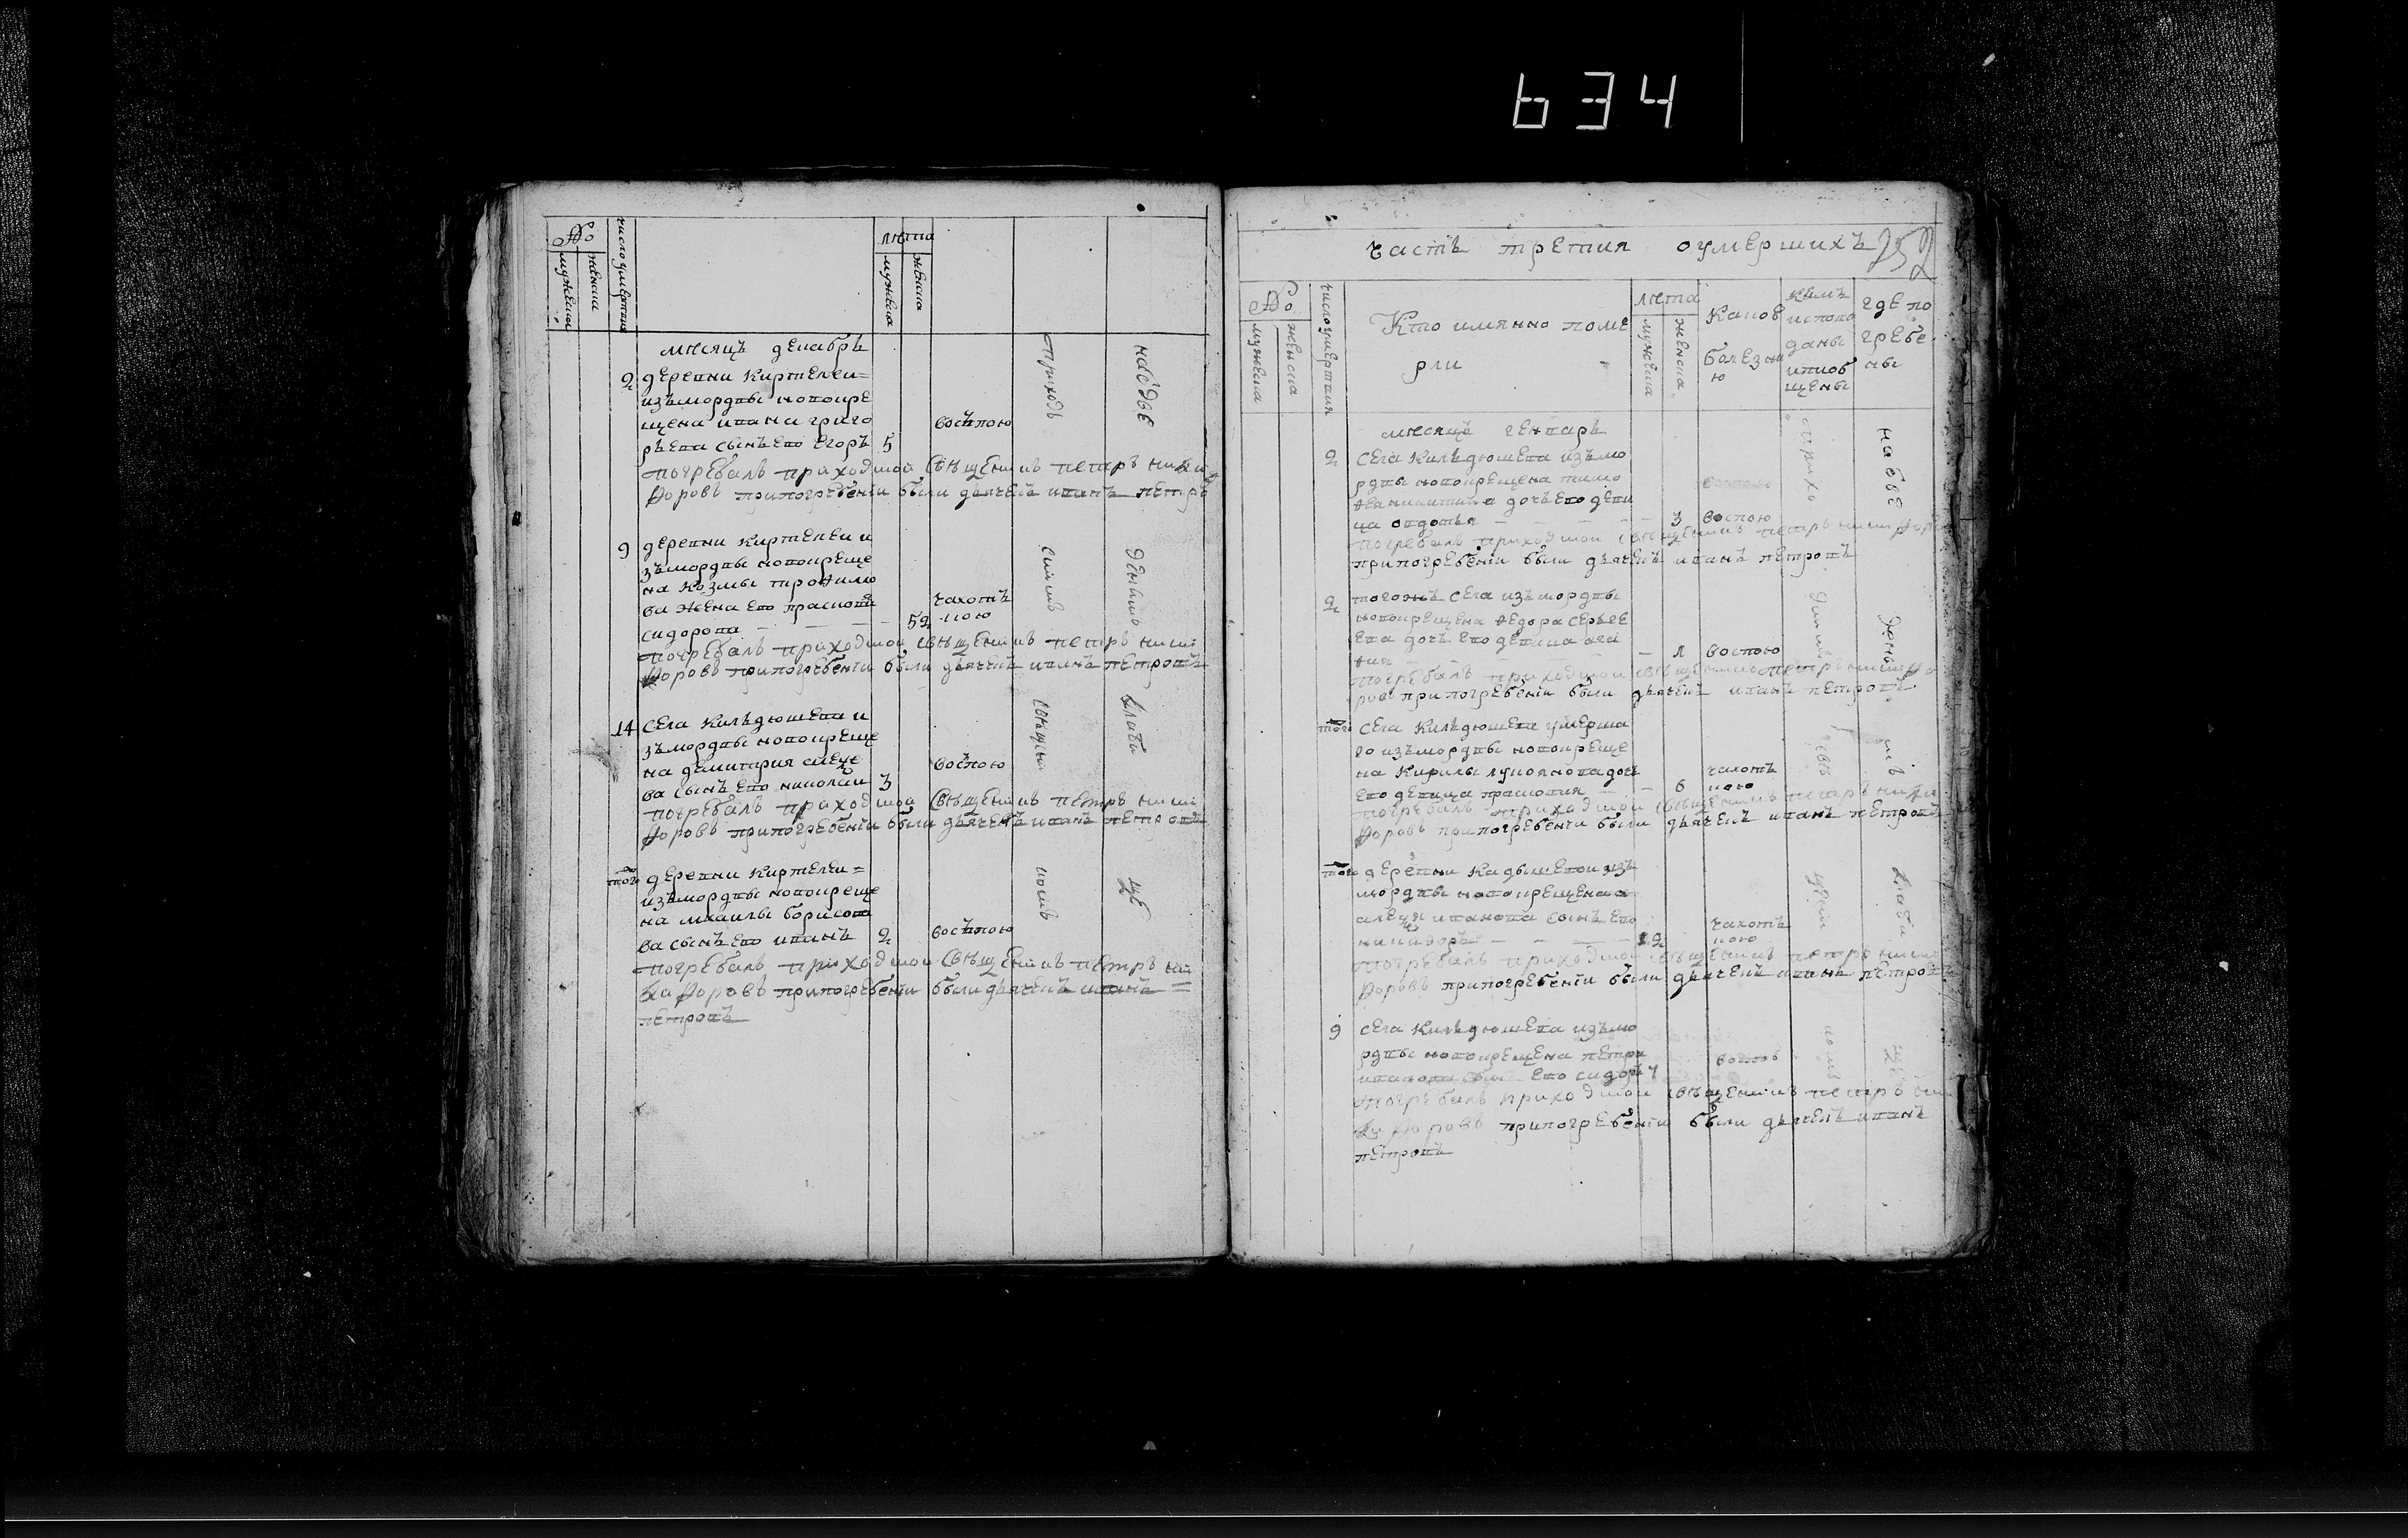 634
№
мужска
женска
число умертвия
лета
мужеска
женска
месяцъ декабрь
2 деревни Киртелеи=
изъ мордвы новокре
щена ивана григо
рьева сынъ ево егоръ 5 воспою
погребалъ приходской священникъ петръ ники
форовъ при погребенiи были дьячекъ иванъ петро
9 деревни Киртелеи и
зъ мордвы новокреще
на Козмы трофимо
ва жена ево прасковья чахоть
сидорова 52 кою
погребалъ приходской священникъ петръ ники
форовъ при погребенiи были дьячекъ иванъ петровъ
14 села Кильдюшева и
зъ мордвы новокреще
на димитрия алеѯе воспою
ва сынъ ево николаи 3
погребалъ приходской священникъ петръ ники
форовъ при погребенiи были дьячекъ иванъ петровъ
того деревни Киртелеи=
изъ мордвы новокреще
на михаилы борисо
ва сынъ ево иванъ 2 воспою
погребалъ приходской священникъ петръ ни
ки форовъ при погребенiи были дьячекъ иванъ =
петровъ
приходъ
скимъ
священ
никомъ
на обще
денномъ
кладби
ще
часть третия оумершихъ 252
№
мужеска
женска
число умертвия
Кто имянно поме
рли
лета
мужеска
женска
Какою
болезни
ю
кемъ
испове
даны
и приоб
щены
где по
гребе
ны
месяцъ генварь
2 села Кильдюшева изъ мо
рдвы новокрещена тимо
фея никитина дочь ево деви
ца овдотья 3 воспою
погребалъ приходской священникъ петръ никифоро
при погребенiи были дьячекъ иванъ петровъ
2 тогожъ села изъ мордвы
новокрещена федора сергее
ва дочь ево девица ага
фия 1 воспою
погребалъ приходской священникъ петръ никифо
ровъ при погребенiи были дьячекъ иванъ петровъ
того села Кильдюшева умерша
го изъ мордвы новокреще
на Кирилы дочь чахоть
ево девица прасковия 6 кою
погребалъ приходской священникъ петръ ники
форовъ при погребенiи были дьячекъ иванъ петровъ
того деревни Кадышевои изъ
мордвы новокрещена
алеѯея иванова сынъ ево чахоть
никифоръ 12 кою
погребалъ приходской священникъ петръ ники
форовъ при погребенiи были дьячекъ иванъ петровъ
9 села Кильдюшева изъ мо
рдвы новокрещена петра воспою
иванова сынъ ево сидоръ 7
погребалъ приходской священникъ петръ ни
ки форовъ при погребенiи были дьячекъ иванъ
петровъ
прихо
дскимъ
свя
щен
никомъ
на обще
денно
мъ
кладби
ще